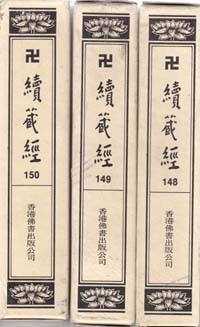 卍續藏經
150
香港佛書出版公司
卍續藏經
149
香港佛書出版公司
卍續藏經
148
香港佛書出版公司